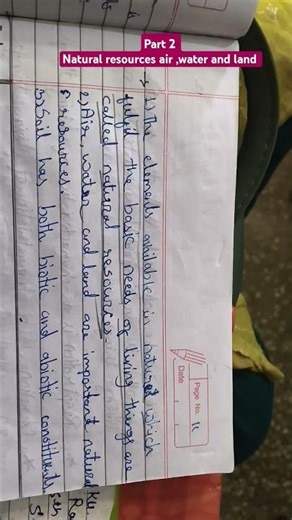 Part 2
Natural resources air ,water and land
Page No. 11
Date
1) The elements available in nature which
fulfil the basic needs of living things are
called natural resources.
2) Air, water and land are important natural
resources.
3) Soil has both biotic and abiotic constituents